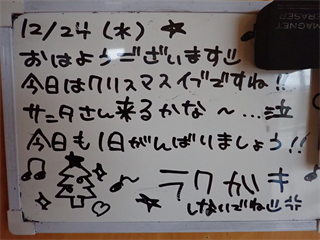 12/24(水)
おはようございます
今日はクリスマスイブですね!!
サンタさん来るかな～…泣
今日も1日がんばりましょう!!
ラクガキ
しないでね
MAGNET
ERASER